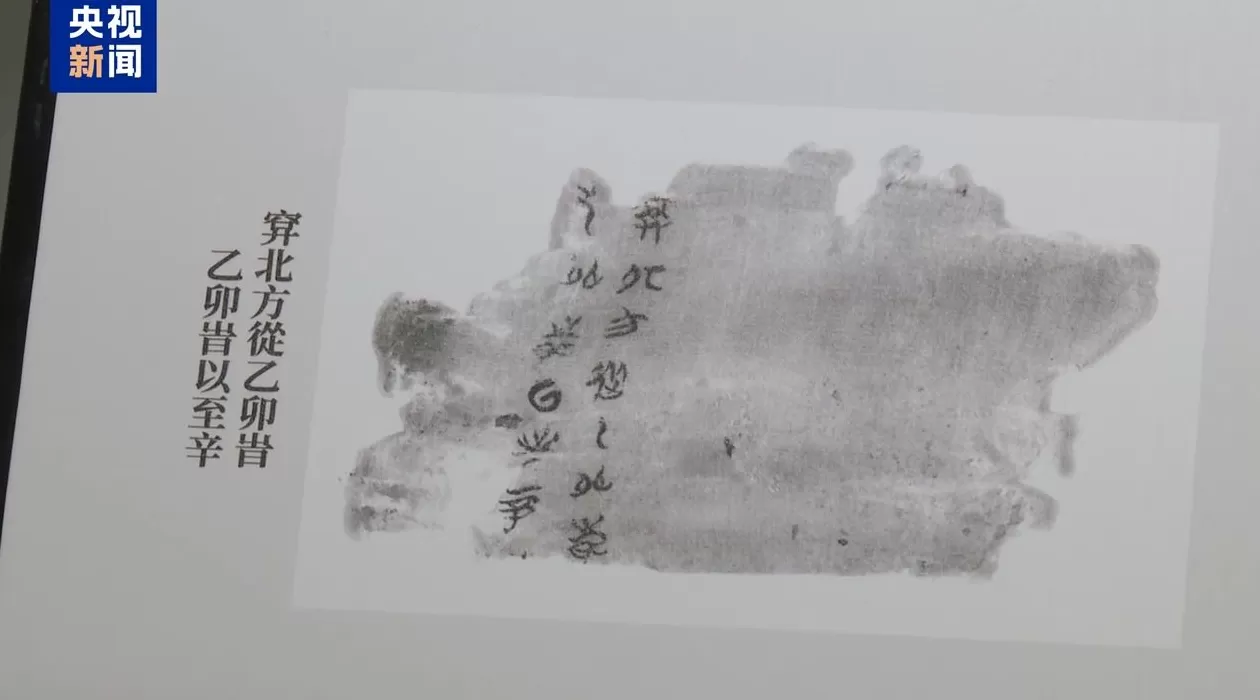 央视
新闻
北方從乙卯旹
乙卯旹以至辛
北方從乙卯旹
乙卯旹以至辛